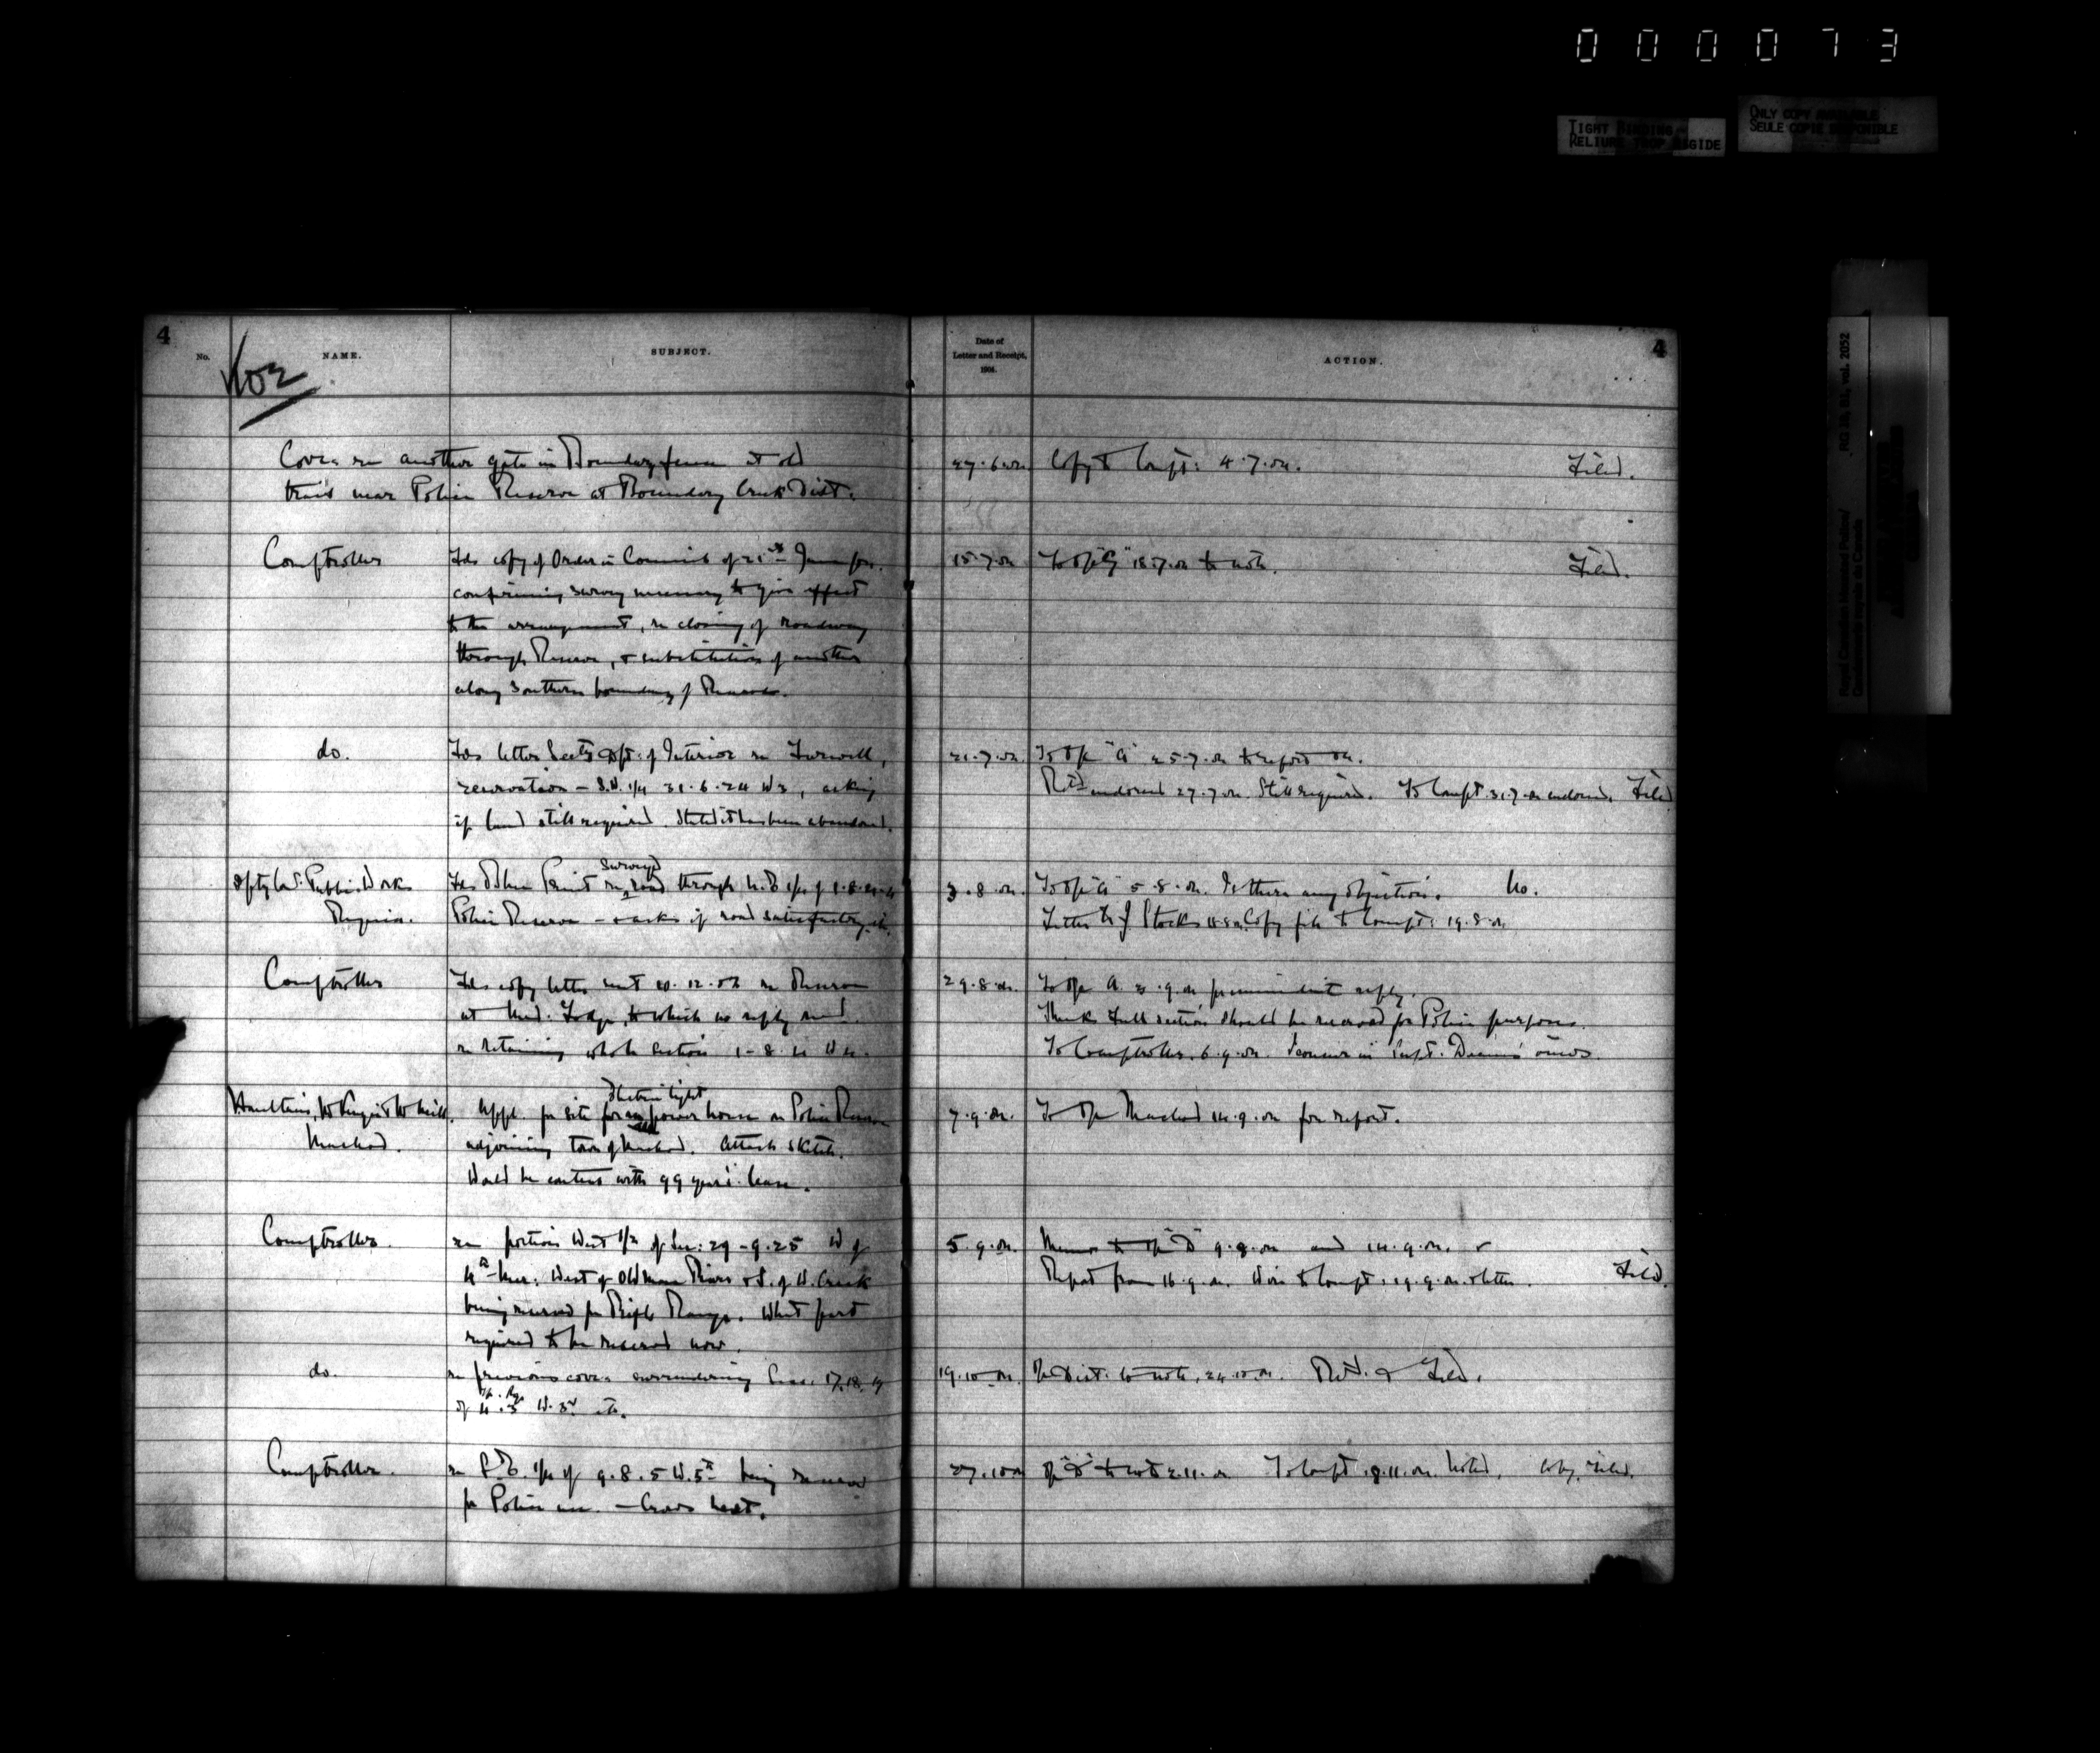 0 0 0 0 7 3
TIGHT BINDING
RELIURE TROP RIGIDE
ONLY COPY AVAILABLE
SEULE COPIE DISPONIBLE
RG 18, B1, vol. 2052
Royal Canadian Mounted Police/
Gendarmerie royale du Canada
4
4
No.
NAME.
SUBJECT.
Date of
Letter and Receipt,
1904.
ACTION.
102
Cover re another gate in Boundary fence at old
trail near Police Reserve at Boundary Creek Dist.
27.6.04
Copy to Compt: 4.7.04.
Filed.
Comptroller
Fds copy of Order in Council of 21st June
confirming survey necessary to give effect
to the arrangement, re closing of roadway
through Reserve, & substitution of another
along Southern boundary of Reserve.
15.7.04
18.7.04 to note.
Filed.
do.
Fds letter Secty Dept: of Interior re Farwell,
reservation – S.W. 1/4 31.6.24 W3, asking
if land still required. Stated it has been abandoned.
21.7.04
To Off "A" 25.7.04 to report on.
Retd endorsed 27.7.04 Still required. To Compt. 31.7.04 endorsed. Filed
Public Works
Regina.
surveyed
road through
Police Reserve – & asks if road satisfactory etc.
3.8.04.
To Off "A" 5.8.04. Is there any objection. No.
Letter to J Stocks Copy file to Compt: 19.8.04
Comptroller
Fds copy letter sent 20.12.03 re Reserve
at Med. Lodge, to which no reply recd.
re retaining whole section 1-8.
29.8.04.
To Off A. 3.9.04 reply.
Thinks full section should be reserved for Police purposes.
To Comptroller, 6.9.04. Concur in Supt. Deane's views.
Haultain,
Macleod.
Electric light
Appl. for site for power house on Police Reserve
adjoining town of Macleod. Attach sketch.
Would be content with 99 years' lease.
7.9.04.
To Off Macleod 14.9.04 for report.
Comptroller.
re portion West 1/2 of Sec: 29-9.25 W of
4th Mer: West of Oldman River & S. of W. Creek
being reserved for Rifle Range. What part
required to be reserved now.
5.9.04.
Memo to Off "D" 9.9.04 and 14.9.04. &
Report from 16.9.04. Wire to Compt. 19.9.04 & letter.
Filed.
do.
re previous cover surrendering Secs. 17, 18, 19
Tp. Rg.
of 4.5 W. 3rd etc.
19.10.04.
to note, 24.10.04. Retd. & Filed.
Comptroller.
re 1/4 of 9.8.5 W.5th being reserved
for Police use. – Crows Nest.
27.10.04
Off "D" to note 2.11.04 To Compt. 9.11.04. Noted. Copy, filed.